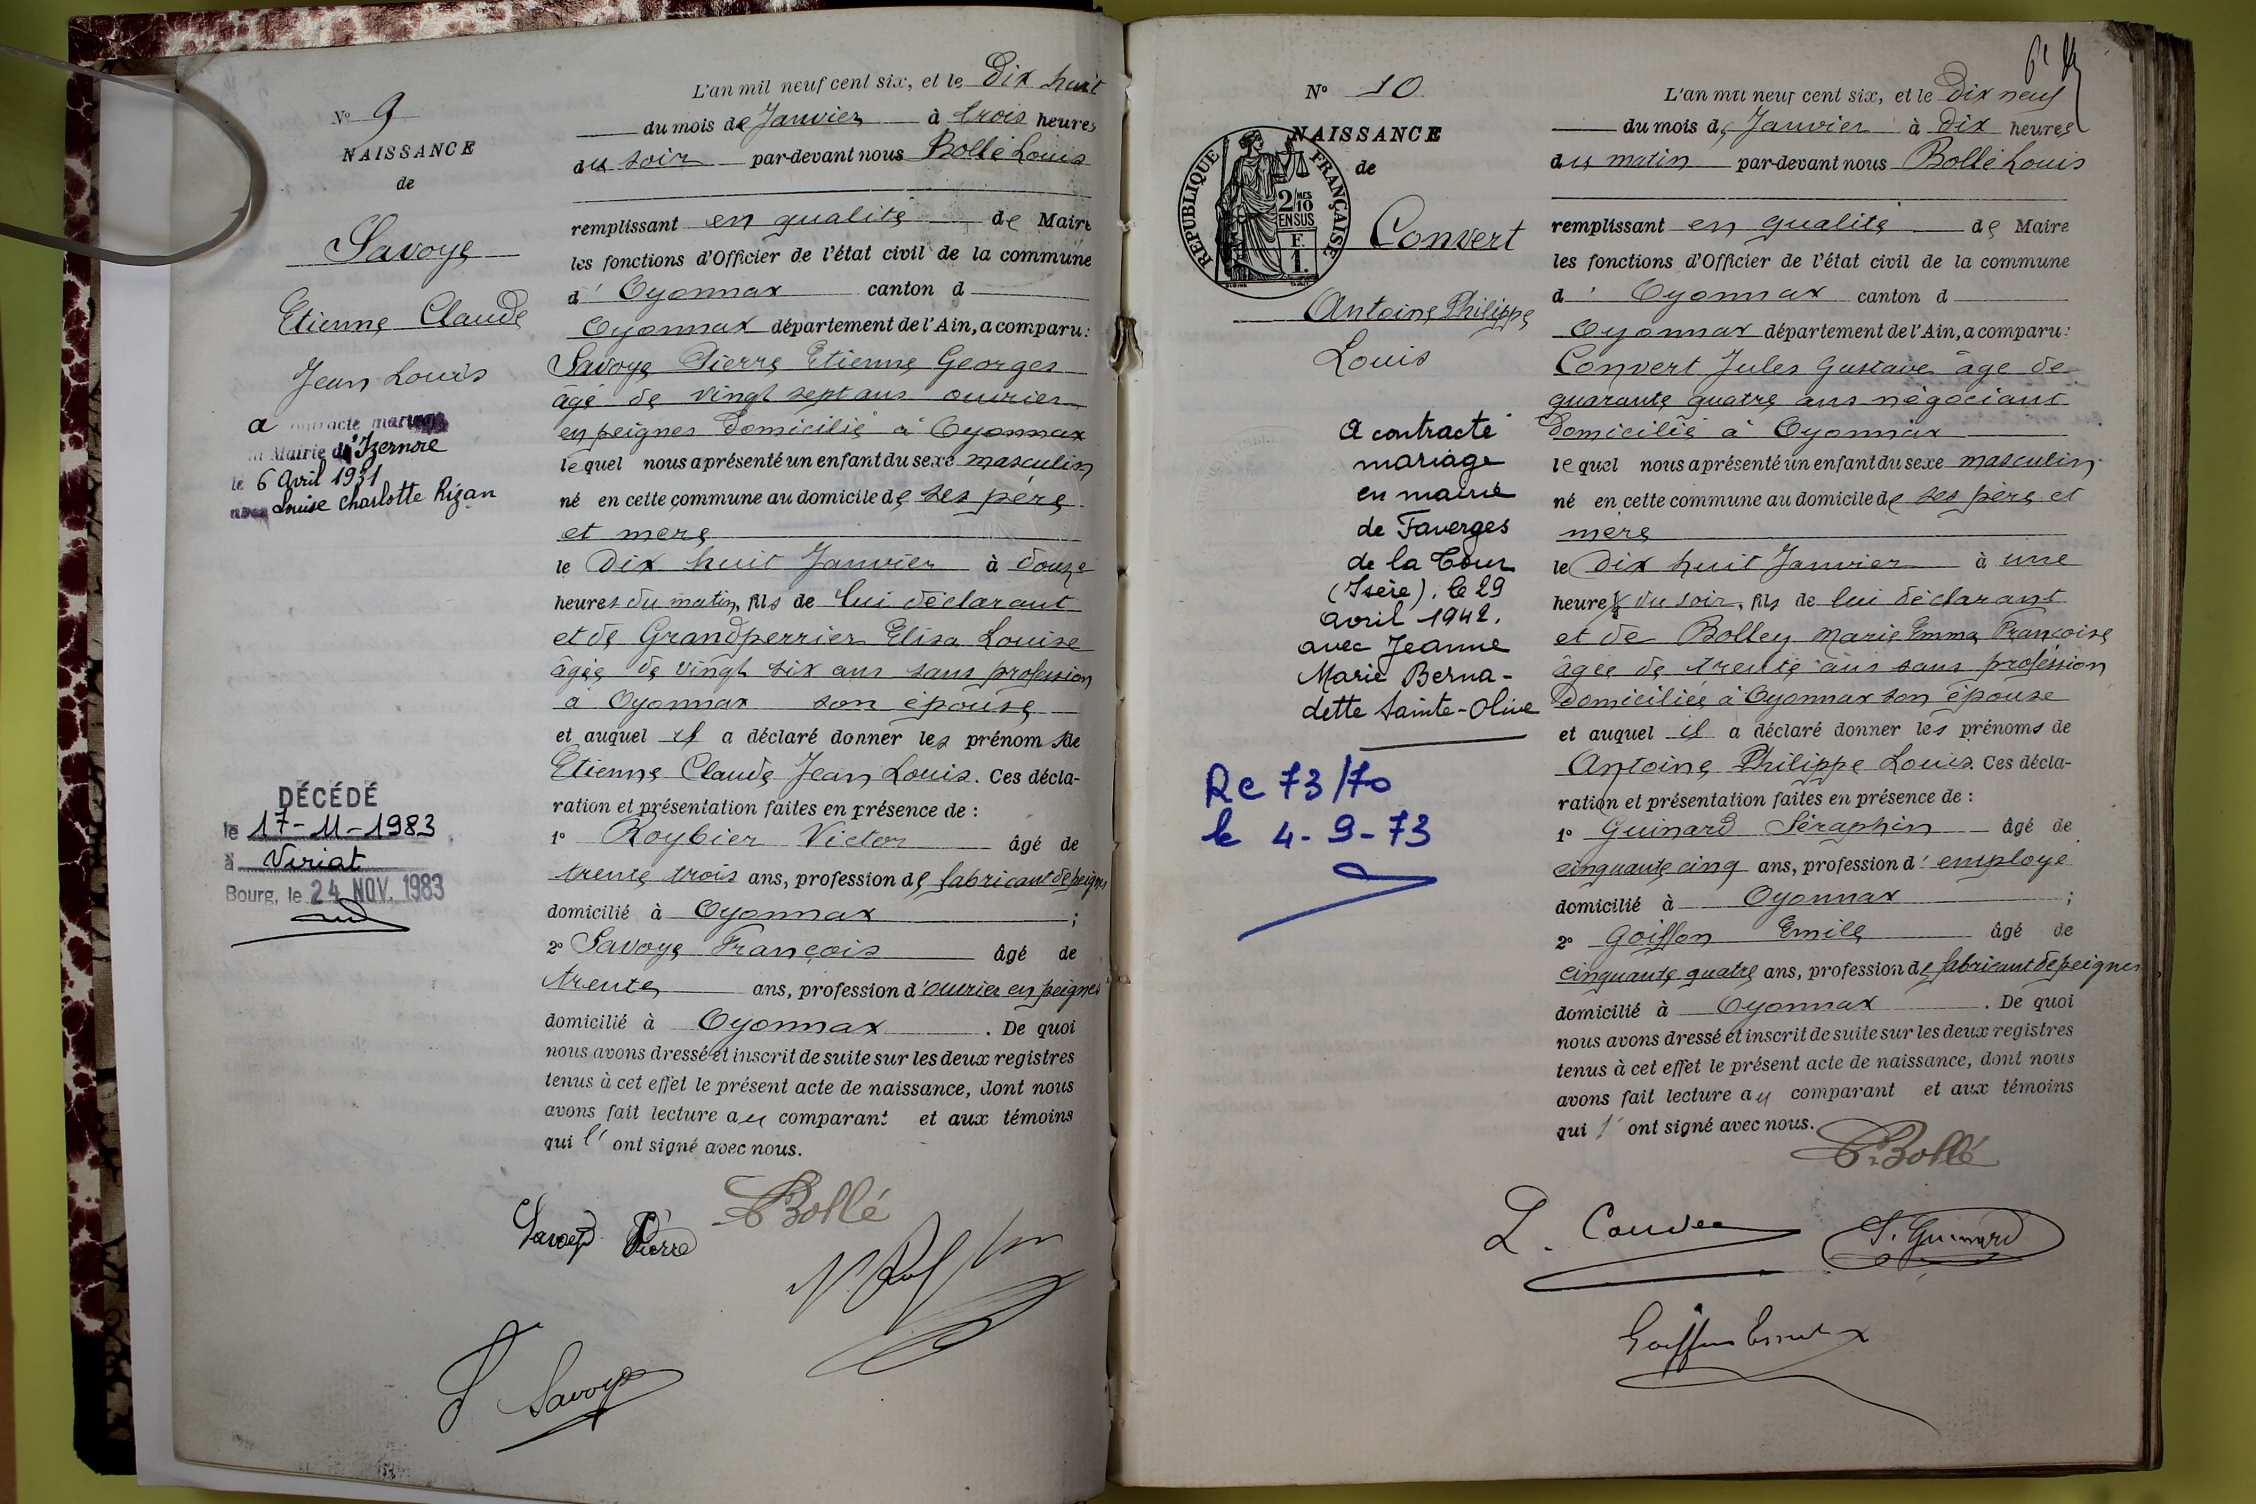 L'an mil neuf cent six, et le Dix huit
N° 9
du mois de Janvier à trois heures
NAISSANCE
du soir par-devant nous Bollé Louis
de
remplissant en qualité de Maire
Savoye
les fonctions d'Officier de l'état civil de la commune
d' Oyonnax canton d
Etienne Claude
Oyonnax département de l'Ain, a comparu:
Jean Louis
Savoye Pierre Etienne Georges
âgé de vingt sept ans ouvrier
a contracté mariage
en peignes domicilié à Oyonnax
Mairie d'Izernore
lequel nous a présenté un enfant du sexe masculin
le 6 Avril 1931
avec Louise Charlotte
né en cette commune au domicile de ses père
et mère
le Dix huit Janvier à douze
heures du matin, fils de lui déclarant
et de Grandperrier Elisa Louise
âgée de vingt six ans sans profession
à Oyonnax son épouse
et auquel il a déclaré donner les prénoms de
Etienne Claude Jean Louis. Ces décla-
ration et présentation faites en présence de :
DÉCÉDÉ
le 17-11-1983
à Viriat
Bourg, le 24 NOV. 1983
1° Roybier Victor âgé de
trente trois ans, profession de fabricant de peignes
domicilié à Oyonnax ;
2° Savoye François âgé de
trente ans, profession d'ouvrier en peignes
domicilié à Oyonnax . De quoi
nous avons dressé et inscrit de suite sur les deux registres
tenus à cet effet le présent acte de naissance, dont nous
avons fait lecture au comparant et aux témoins
qui l' ont signé avec nous.
Bollé
Savoye Pierre
Savoye
N° 10
L'an mil neuf cent six, et le Dix neuf
du mois de Janvier à Dix heures
NAISSANCE
du matin par-devant nous Bollé Louis
de
RÉPUBLIQUE FRANÇAISE
2/10 MES
EN SUS
F.
1.
remplissant en qualité de Maire
Convert
les fonctions d'Officier de l'état civil de la commune
d' Oyonnax canton d
Antoine Philippe
Oyonnax département de l'Ain, a comparu:
Louis
Convert Jules Gustave âgé de
quarante quatre ans négociant
domicilié à Oyonnax
lequel nous a présenté un enfant du sexe masculin
né en cette commune au domicile de ses père et
mère
le Dix huit Janvier à une
heure du soir, fils de lui déclarant
et de Bolley Marie Emma Françoise
âgée de trente ans sans profession
domiciliée à Oyonnax son épouse
et auquel il a déclaré donner les prénoms de
Antoine Philippe Louis. Ces décla-
ration et présentation faites en présence de :
A contracté
mariage
en mairie
de Faverges
de la Tour
(Isère), le 29
avril 1942.
avec Jeanne
Marie Berna-
dette Sainte-Olive
RC 73/70
le 4-9-73
1° Guinard Séraphin âgé de
cinquante cinq ans, profession d'employé
domicilié à Oyonnax ;
2° Goiffon Emile âgé de
cinquante quatre ans, profession de fabricant de peignes
domicilié à Oyonnax . De quoi
nous avons dressé et inscrit de suite sur les deux registres
tenus à cet effet le présent acte de naissance, dont nous
avons fait lecture au comparant et aux témoins
qui l' ont signé avec nous.
Bollé
S. Guinard